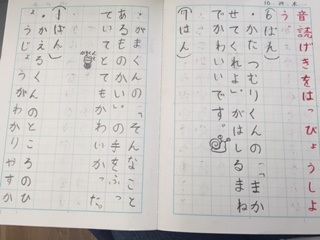 音読げきをはっぴょうしよ
う
⑥はん)
・かたつむりくんの「まか
せてくれよ」がはしるまね
でかわいいです。
⑦はん)
・がまくんの「そんなこと
あるものかい」の手をふっ
ていてとてもかわいかった。
①ぱん)
・かえるくんのところのひ
ょうじょうがわかりやすか